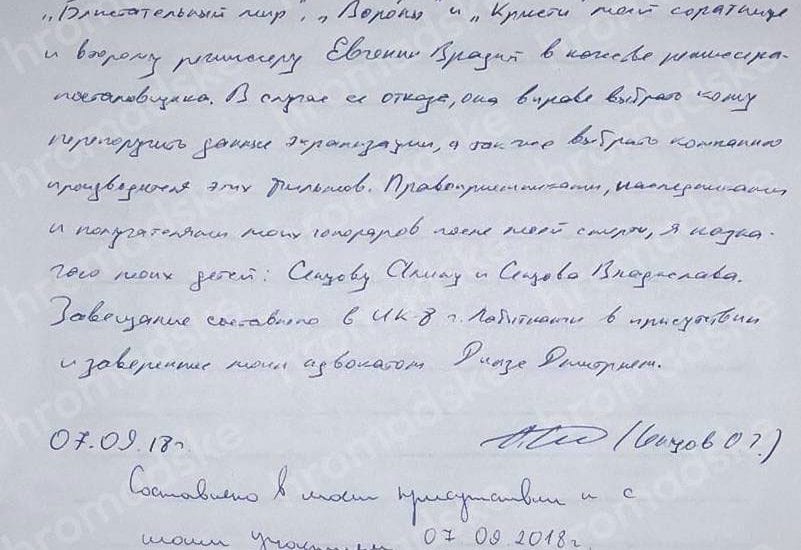 „Блистательный мир", „Вороны" и „Кристи моей соратнице
и второму режиссеру Евгении Врадий в качестве режиссера-
постановщика. В случае ее отказа, она вправе выбрать кому
перепоручить данные экранизации, а так же выбрать компанию
производителя этих фильмов. Правоприемниками, наследниками
и получателями моих гонораров после моей смерти, я назна-
чаю моих детей: Сенцову Алину и Сенцова Владислава.
Завещание составлено в ИК-8 г. Лабытнанги в присутствии
и заверенное моим адвокатом Динзе Дмитрием.
07.09.18г. (Сенцов О Г.)
Составлено в моем присутствии и с
моим участием 07 09 2018г.
hromadske